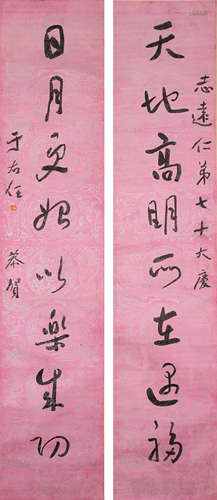 志遠仁弟七十大慶
天地高明所在遇福
日月更始以樂成功
于右任 恭賀